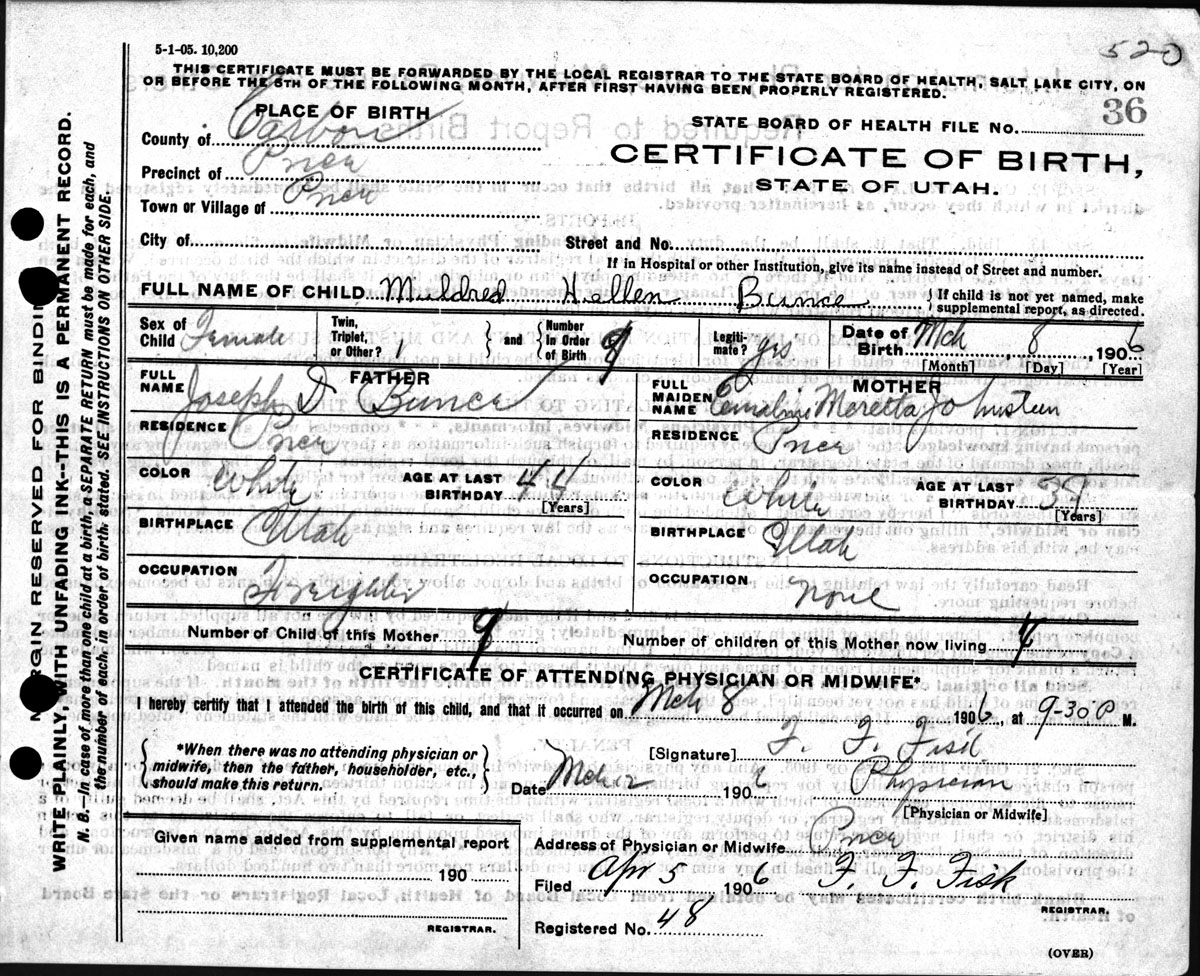 5-1-05. 10,200
520
THIS CERTIFICATE MUST BE FORWARDED BY THE LOCAL REGISTRAR TO THE STATE BOARD OF HEALTH, SALT LAKE CITY, ON
OR BEFORE THE 5TH OF THE FOLLOWING MONTH, AFTER FIRST HAVING BEEN PROPERLY REGISTERED.
PLACE OF BIRTH
STATE BOARD OF HEALTH FILE NO. 36
County of Carbon
CERTIFICATE OF BIRTH,
Precinct of Price
STATE OF UTAH.
Town or Village of Price
City of
Street and No.
If in Hospital or other Institution, give its name instead of Street and number.
FULL NAME OF CHILD Mildred Hellen Bunce } If child is not yet named, make
supplemental report, as directed.
Sex of Child Female
Twin, Triplet, or Other? 1 } and { Number In Order of Birth 9
Legitimate? yes
Date of Birth Mch 8, 1906
[Month] [Day] [Year]
FULL NAME FATHER
Joseph D. Bunce
FULL MAIDEN NAME MOTHER
Meretta Johnsteen
RESIDENCE Price
RESIDENCE Price
COLOR White AGE AT LAST BIRTHDAY 44 [Years]
COLOR White AGE AT LAST BIRTHDAY 39 [Years]
BIRTHPLACE Utah
BIRTHPLACE Utah
OCCUPATION Freighter
OCCUPATION None
Number of Child of this Mother 9 Number of children of this Mother now living
CERTIFICATE OF ATTENDING PHYSICIAN OR MIDWIFE*
I hereby certify that I attended the birth of this child, and that it occurred on Mch 8
1906, at 9-30 P M.
{ *When there was no attending physician or
midwife, then the father, householder, etc.,
should make this return. }
[Signature] F. F. Fisk
Date Mch 12 1906 Physician
[Physician or Midwife]
Given name added from supplemental report
190
REGISTRAR.
Address of Physician or Midwife Price
Filed Apr 5 1906 F. F. Fisk
REGISTRAR.
Registered No. 48
(OVER)
MARGIN RESERVED FOR BINDING
WRITE PLAINLY, WITH UNFADING INK--THIS IS A PERMANENT RECORD.
N. B.—In case of more than one child at a birth, a SEPARATE RETURN must be made for each, and
the number of each, in order of birth, stated. SEE INSTRUCTIONS ON OTHER SIDE.